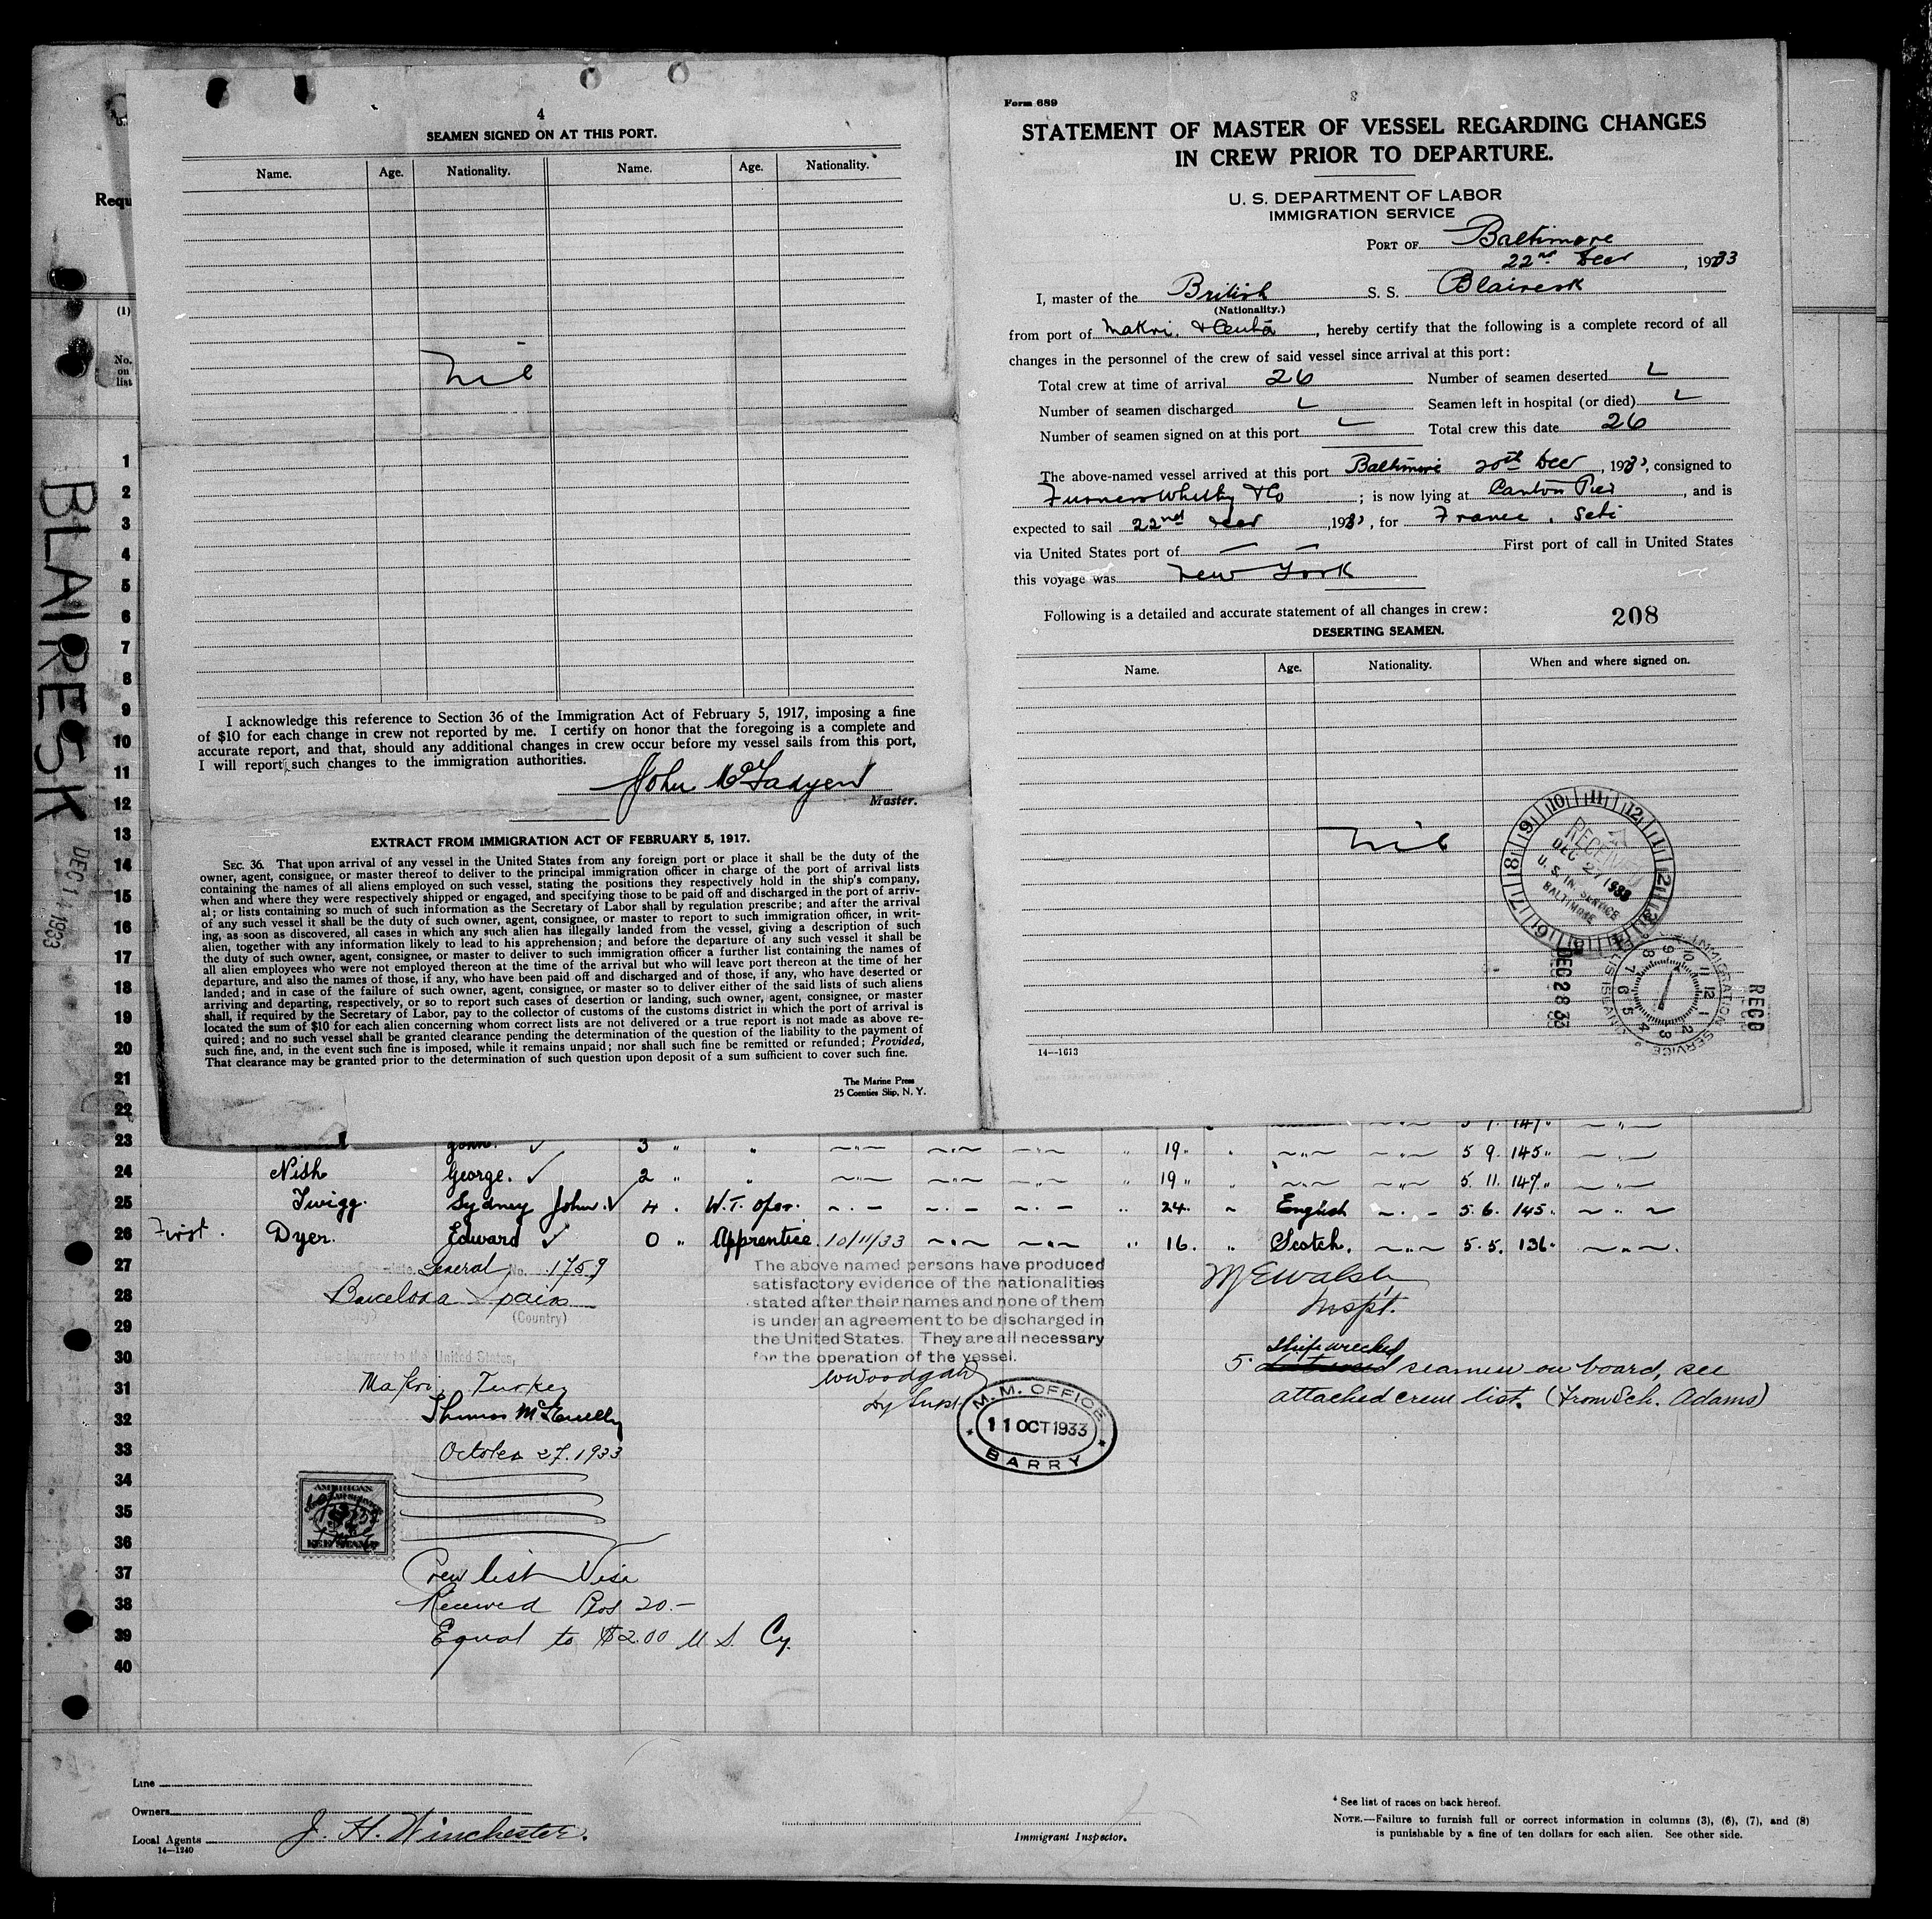 4
SEAMEN SIGNED ON AT THIS PORT.
Name. Age. Nationality. Name. Age. Nationality.
Nil
I acknowledge this reference to Section 36 of the Immigration Act of February 5, 1917, imposing a fine
of $10 for each change in crew not reported by me. I certify on honor that the foregoing is a complete and
accurate report, and that, should any additional changes in crew occur before my vessel sails from this port,
I will report such changes to the immigration authorities.
John McFadyen
Master.
EXTRACT FROM IMMIGRATION ACT OF FEBRUARY 5, 1917.
SEC. 36. That upon arrival of any vessel in the United States from any foreign port or place it shall be the duty of the
owner, agent, consignee, or master thereof to deliver to the principal immigration officer in charge of the port of arrival lists
containing the names of all aliens employed on such vessel, stating the positions they respectively hold in the ship's company,
when and where they were respectively shipped or engaged, and specifying those to be paid off and discharged in the port of arriv-
al; or lists containing so much of such information as the Secretary of Labor shall by regulation prescribe; and after the arrival
of any such vessel it shall be the duty of such owner, agent, consignee, or master to report to such immigration officer, in writ-
ing, as soon as discovered, all cases in which any such alien has illegally landed from the vessel, giving a description of such
alien, together with any information likely to lead to his apprehension; and before the departure of any such vessel it shall be
the duty of such owner, agent, consignee, or master to deliver to such immigration officer a further list containing the names of
all alien employees who were not employed thereon at the time of the arrival but who will leave port thereon at the time of her
departure, and also the names of those, if any, who have been paid off and discharged and of those, if any, who have deserted or
landed; and in case of the failure of such owner, agent, consignee, or master so to deliver either of the said lists of such aliens
arriving and departing, respectively, or so to report such cases of desertion or landing, such owner, agent, consignee, or master
shall, if required by the Secretary of Labor, pay to the collector of customs of the customs district in which the port of arrival is
located the sum of $10 for each alien concerning whom correct lists are not delivered or a true report is not made as above re-
quired; and no such vessel shall be granted clearance pending the determination of the question of the liability to the payment of
such fine, and, in the event such fine is imposed, while it remains unpaid; nor shall such fine be remitted or refunded; Provided,
That clearance may be granted prior to the determination of such question upon deposit of a sum sufficient to cover such fine.
The Marine Press
25 Coenties Slip, N. Y.
Form 689
STATEMENT OF MASTER OF VESSEL REGARDING CHANGES
IN CREW PRIOR TO DEPARTURE.
U. S. DEPARTMENT OF LABOR
IMMIGRATION SERVICE
PORT OF Baltimore
22nd Decr, 1933
I, master of the British S. S. Blairesk
(Nationality.)
from port of Makri & Ceuta, hereby certify that the following is a complete record of all
changes in the personnel of the crew of said vessel since arrival at this port:
Total crew at time of arrival 26 Number of seamen deserted
Number of seamen discharged Seamen left in hospital (or died)
Number of seamen signed on at this port Total crew this date 26
The above-named vessel arrived at this port Baltimore 20th Decr, 193, consigned to
Furness Withy & Co; is now lying at Canton Pier, and is
expected to sail 22nd Decr, 193, for France,
via United States port of — — First port of call in United States
this voyage was New York
Following is a detailed and accurate statement of all changes in crew: 208
DESERTING SEAMEN.
Name. Age. Nationality. When and where signed on.
Nil
RECEIVED
DEC 27 1933
U. S. IM. SERVICE
BALTIMORE
DEC 28 33
RECD
IMMIGRATION SERVICE
ELLIS ISLAND
14—1613
Requ
(1)
No.
on
list
BLAIRESK
DEC 14 1933
1
2
3
4
5
6
7
8
9
10
11
12
13
14
15
16
17
18
19
20
21
22
23 John. 3 " " 19 " 5 9. 145 "
24 Nish George. 2 " " 19 " 5. 11. 147 "
25 Twigg. Sydney John. 4 . W.T. Oper. 24. " English 5. 6. 145 "
26 First. Dyer. Edward 0 " Apprentice. 10/11/33 16. " Scotch. 5. 5. 136 "
27 General No. 1759
28 Barcelona Spain
(Country)
29
30 journey to the United States,
31 Makri, Turkey
32 Thomas
33 October 27. 1933
34
35
36
37 Crew list Visa
38 Received 20.—
39 Equal to $2.00 U S. Cy.
40
The above named persons have produced
satisfactory evidence of the nationalities
stated after their names and none of them
is under an agreement to be discharged in
the United States. They are all necessary
for the operation of the vessel.
M. M. OFFICE
11 OCT 1933
BARRY
M E Walsh
Inspt.
Shipwrecked
5 seamen on board, see
attached crew list. (From Sch. Adams)
AMERICAN
FEE STAMP
Line
Owners
Local Agents J. H. Winchester.
14—1240
Immigrant Inspector.
* See list of races on back hereof.
NOTE.—Failure to furnish full or correct information in columns (3), (6), (7), and (8)
is punishable by a fine of ten dollars for each alien. See other side.